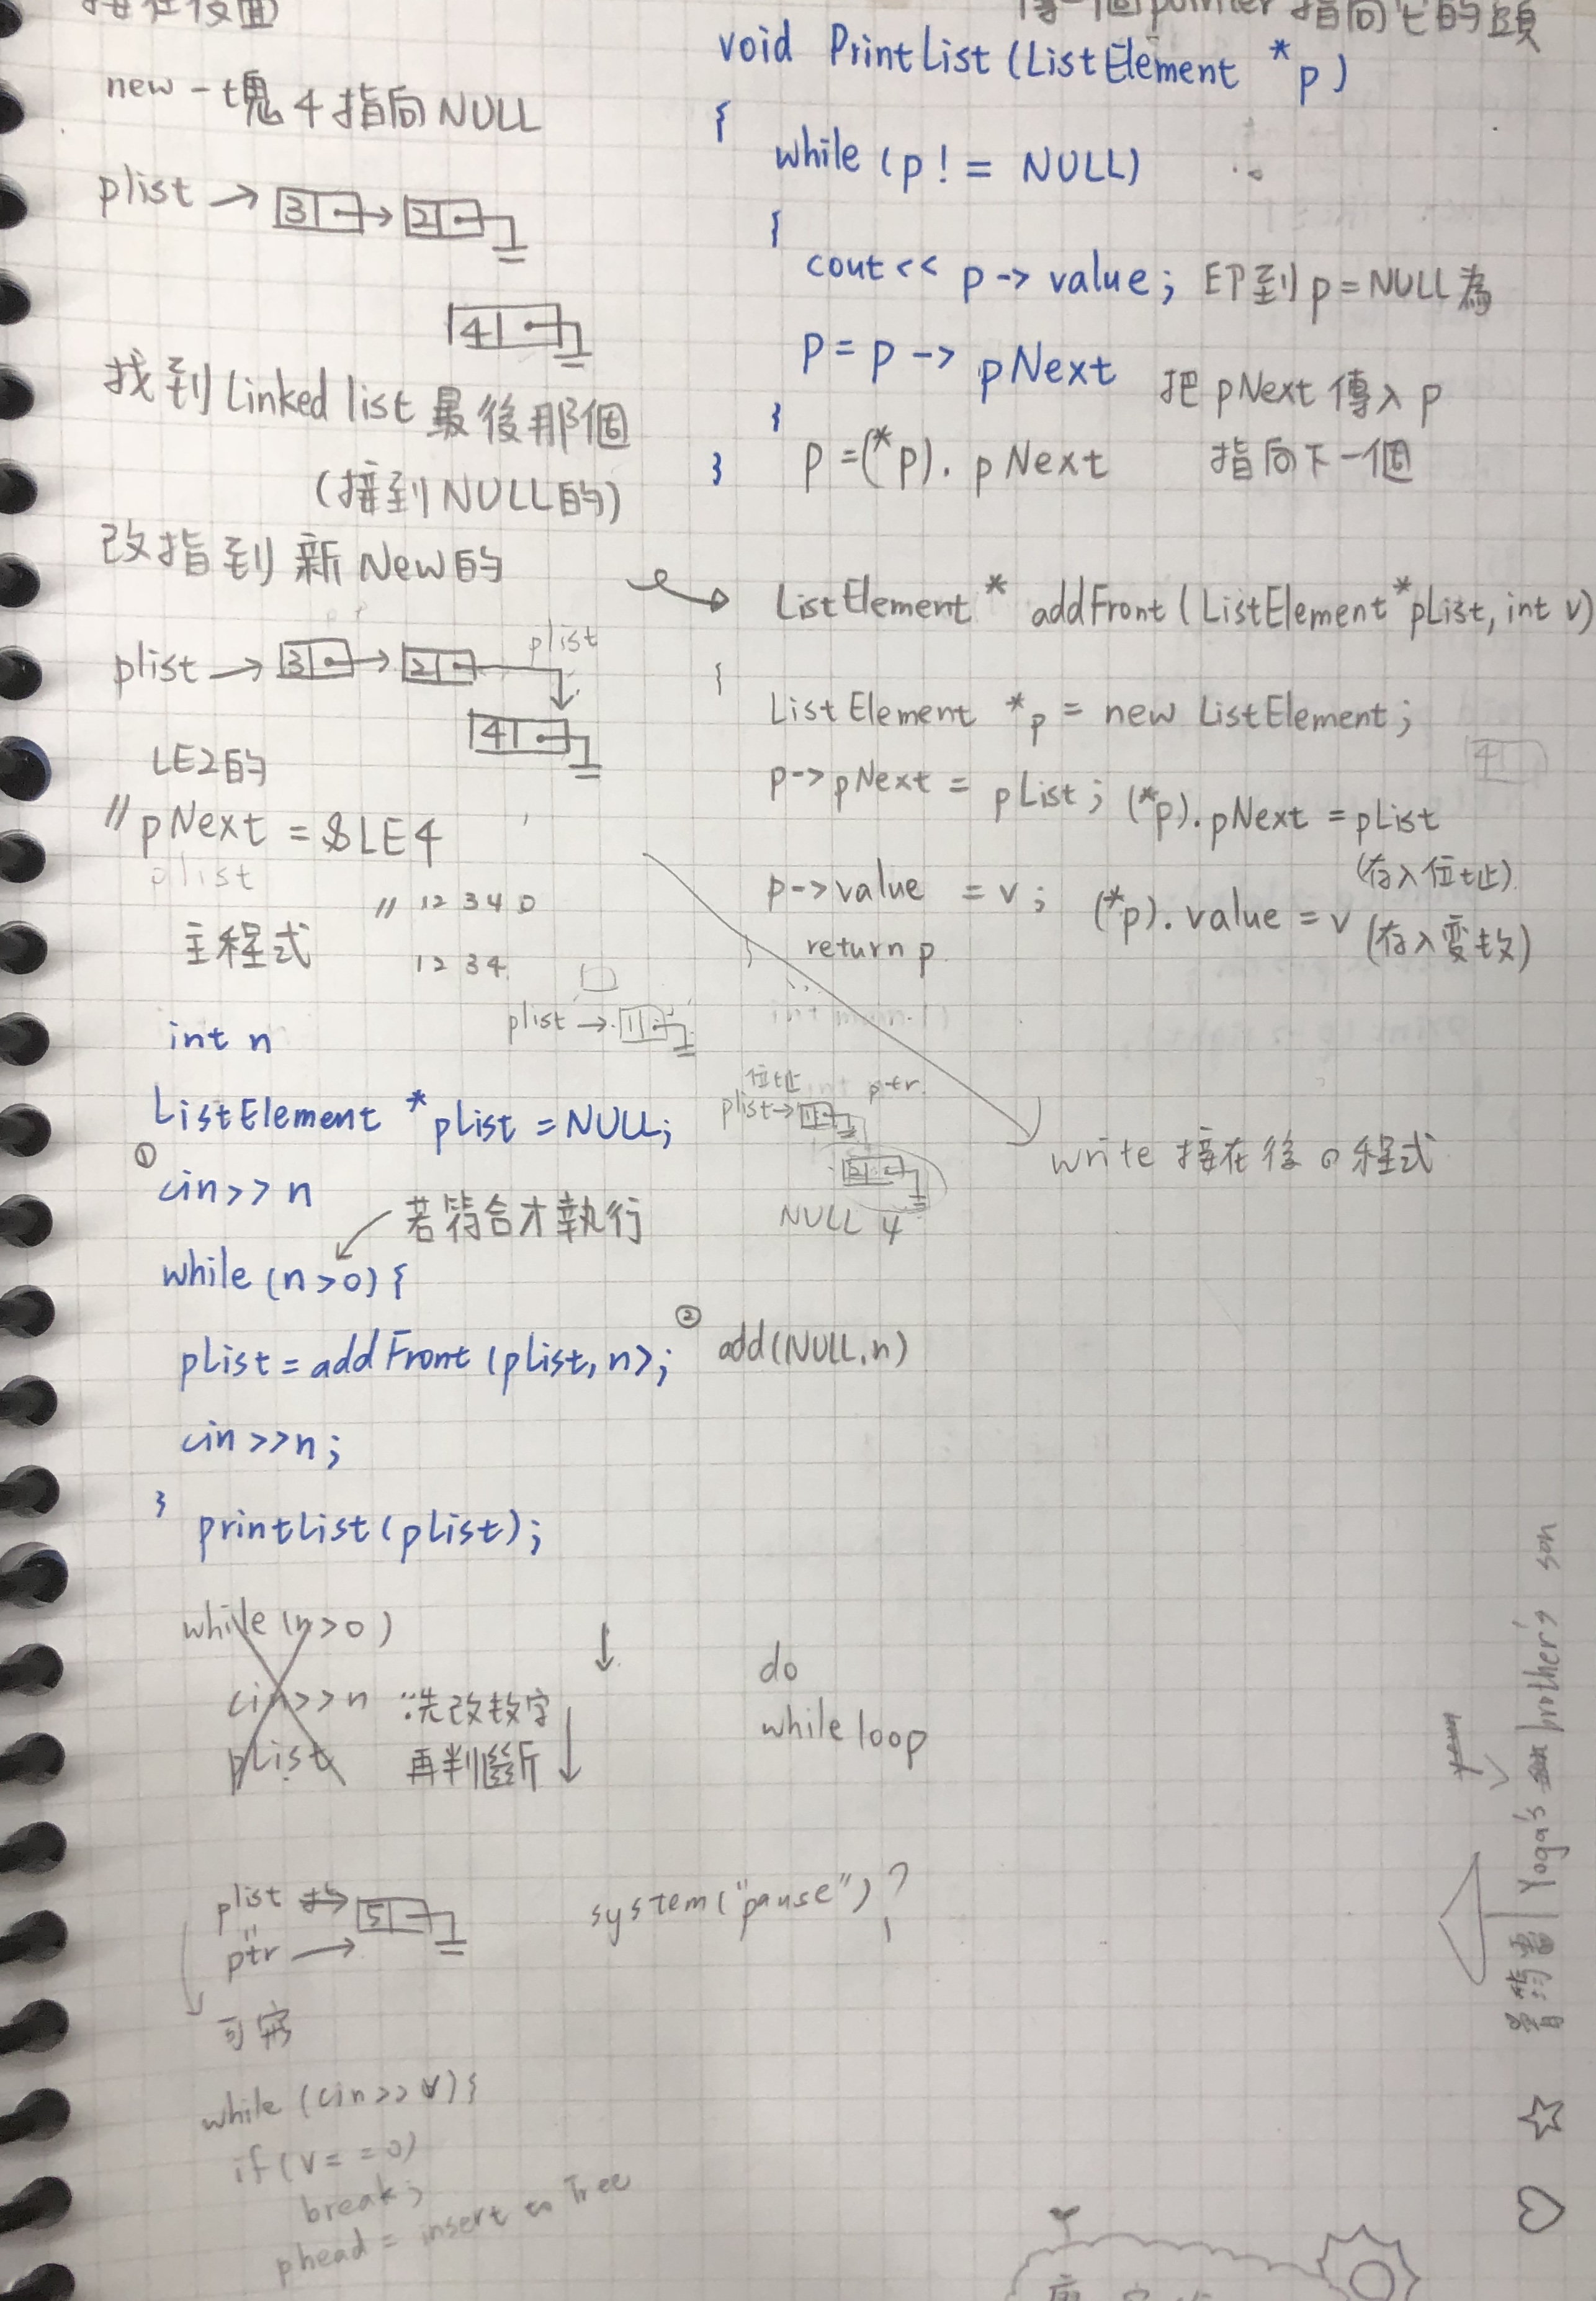 接在後面
new 一塊 4 指向 NULL
plist → 3 → 2
4
找到 Linked list 最後那個
(接到 NULL 的)
改指到 新 New 的
plist → 3 → 2 plist
4
LE2的
// pNext = &LE4
plist
主程式 // 12 3 4 0
1 2 3 4
plist → 1
int n
ListElement * plist = NULL;
① cin >> n
若符合才執行
while (n > 0) {
plist = addFront (plist, n); ② add(NULL, n)
cin >> n;
} printList (plist);
while (n > 0)
cin >> n ∵先改數字
plist 再判斷
plist 指→ 5
"
ptr →
可寫
while (cin >> v) {
if (v = = 0)
break;
phead = insert to Tree
傳一個 pointer 指向它的頭
void PrintList (ListElement * p)
{
while (p ! = NULL)
{
cout << p -> value; 印到 p = NULL 為
p = p -> pNext 把 pNext 傳入 p
}
} p = (*p). pNext 指向下一個
ListElement * addFront (ListElement * pList, int v)
{
ListElement * p = new ListElement;
4
p -> pNext = pList; (*p). pNext = pList
(存入位址)
p -> value = v; (*p). value = v (存入變數)
} return p
位址 ptr.
plist → 1
2
NULL 4
write 接在後の程式
do
while loop
system ("pause") ?
Yoga's brother's son